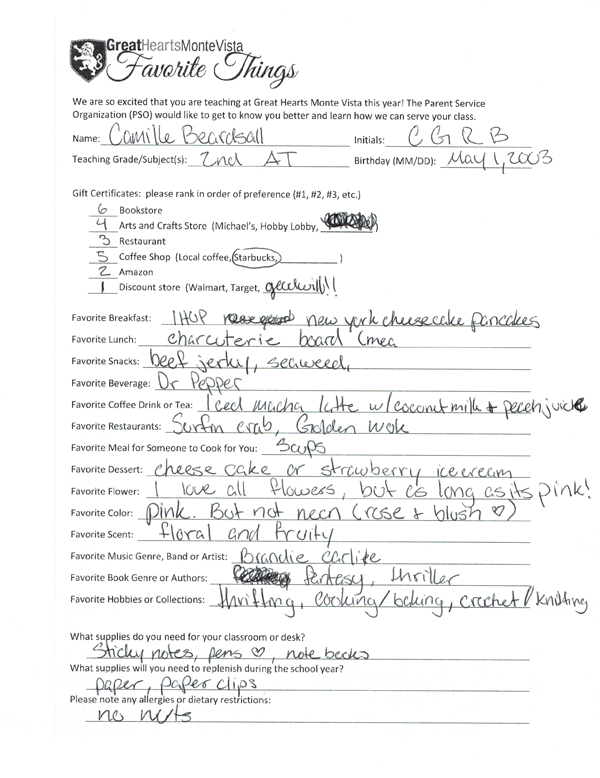 GreatHeartsMonteVista
Favorite Things
We are so excited that you are teaching at Great Hearts Monte Vista this year! The Parent Service
Organization (PSO) would like to get to know you better and learn how we can serve your class.
Name: Camille Beardsall Initials: C G R B
Teaching Grade/Subject(s): 2nd AT Birthday (MM/DD): May 1, 2003
Gift Certificates: please rank in order of preference (#1, #2, #3, etc.)
6 Bookstore
4 Arts and Crafts Store (Michael's, Hobby Lobby, )
3 Restaurant
5 Coffee Shop (Local coffee, Starbucks, )
2 Amazon
1 Discount store (Walmart, Target, goodwill!!
Favorite Breakfast: IHOP new york cheesecake pancakes
Favorite Lunch: charcuterie board (mea
Favorite Snacks: beef jerky, seaweed,
Favorite Beverage: Dr Pepper
Favorite Coffee Drink or Tea: Iced macha latte w/coconut milk + peach juice
Favorite Restaurants: Surfin crab, Golden Wok
Favorite Meal for Someone to Cook for You: Soups
Favorite Dessert: cheese cake or strawberry icecream
Favorite Flower: I love all flowers, but as long as its pink!
Favorite Color: pink. But not neon (rose + blush ♡)
Favorite Scent: floral and fruity
Favorite Music Genre, Band or Artist: Brandie carlile
Favorite Book Genre or Authors: fantesy, thriller
Favorite Hobbies or Collections: thrifting, cooking/baking, crochet//knitting
What supplies do you need for your classroom or desk?
Sticky notes, pens ♡, note books
What supplies will you need to replenish during the school year?
paper, paper clips
Please note any allergies or dietary restrictions:
no nuts